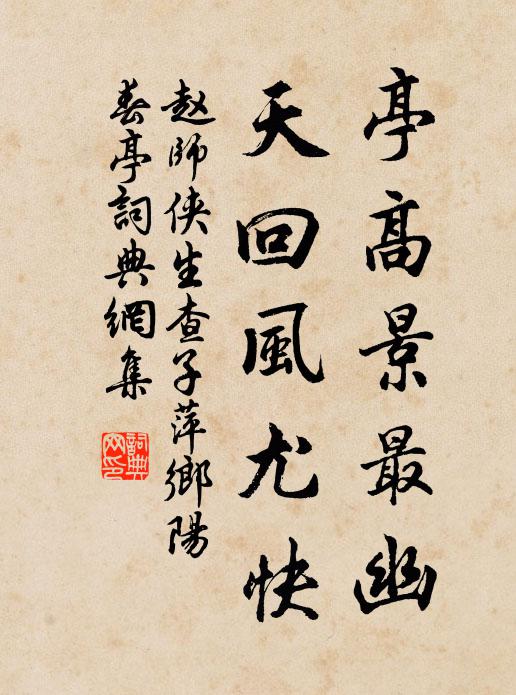 亭高景最幽
天回風尤快
赵師侠生查子萍鄉陽
春亭詞典網集
詞典网印